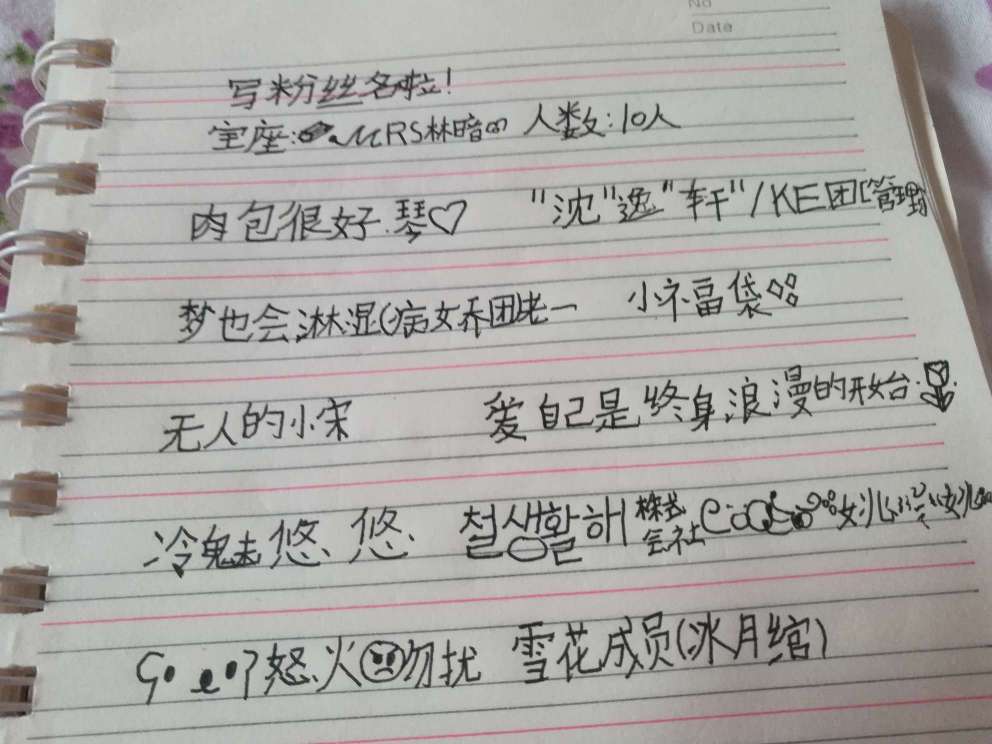 No
Date
写粉丝名啦!
宝座: MRS林暗 人数:10人
肉包很好.琴♡ "沈"逸"轩"/KE团[管理
梦也会淋湿(病女乔团老一 小福袋
无人的小宋 爱自己是终身浪漫的开始
冷鬼悠悠 철생활하 株式会社
怒火勿扰 雪花成员(冰月绾)